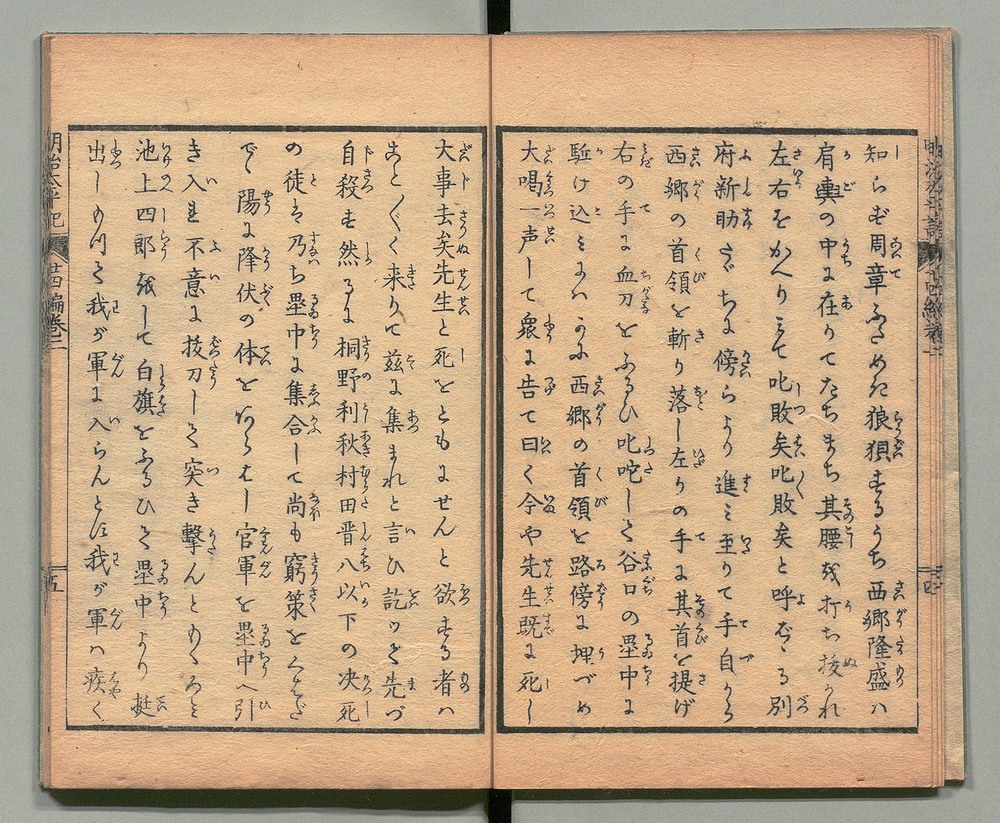 知らず周章ふためき狼狽するうち西郷隆盛ハ
肩輿の中に在りてたちまち其腰を打ち抜かれ
左右をかへりミて叱敗矣叱敗矣と呼ばる別
府新助たゞちに傍らより進ミ至りて手自から
西郷の首領を斬り落し左りの手に其首を提げ
右の手に血刀をふるひ叱咤して谷口の塁中に
駈け込ミ西郷の首領を路傍に埋づめ
大喝一声して衆に告て曰く今や先生既に死し
大事去矣先生と死をともにせんと欲する者ハ
こと〴〵く来りて茲に集まれと言ひ訖ッて先づ
自殺す然るに桐野利秋村田晋八以下の决死
の徒は乃ち塁中に集合して尚も窮策をめぐらし
陽に降伏の体を官軍を塁中へ引
き入れ不意に抜刀して突き撃んと
池上四郎をして白旗をふるひて塁中より挺
出しめて我が軍に入らんとに我が軍ハ疾く
明治太平記
廿四編巻二
五